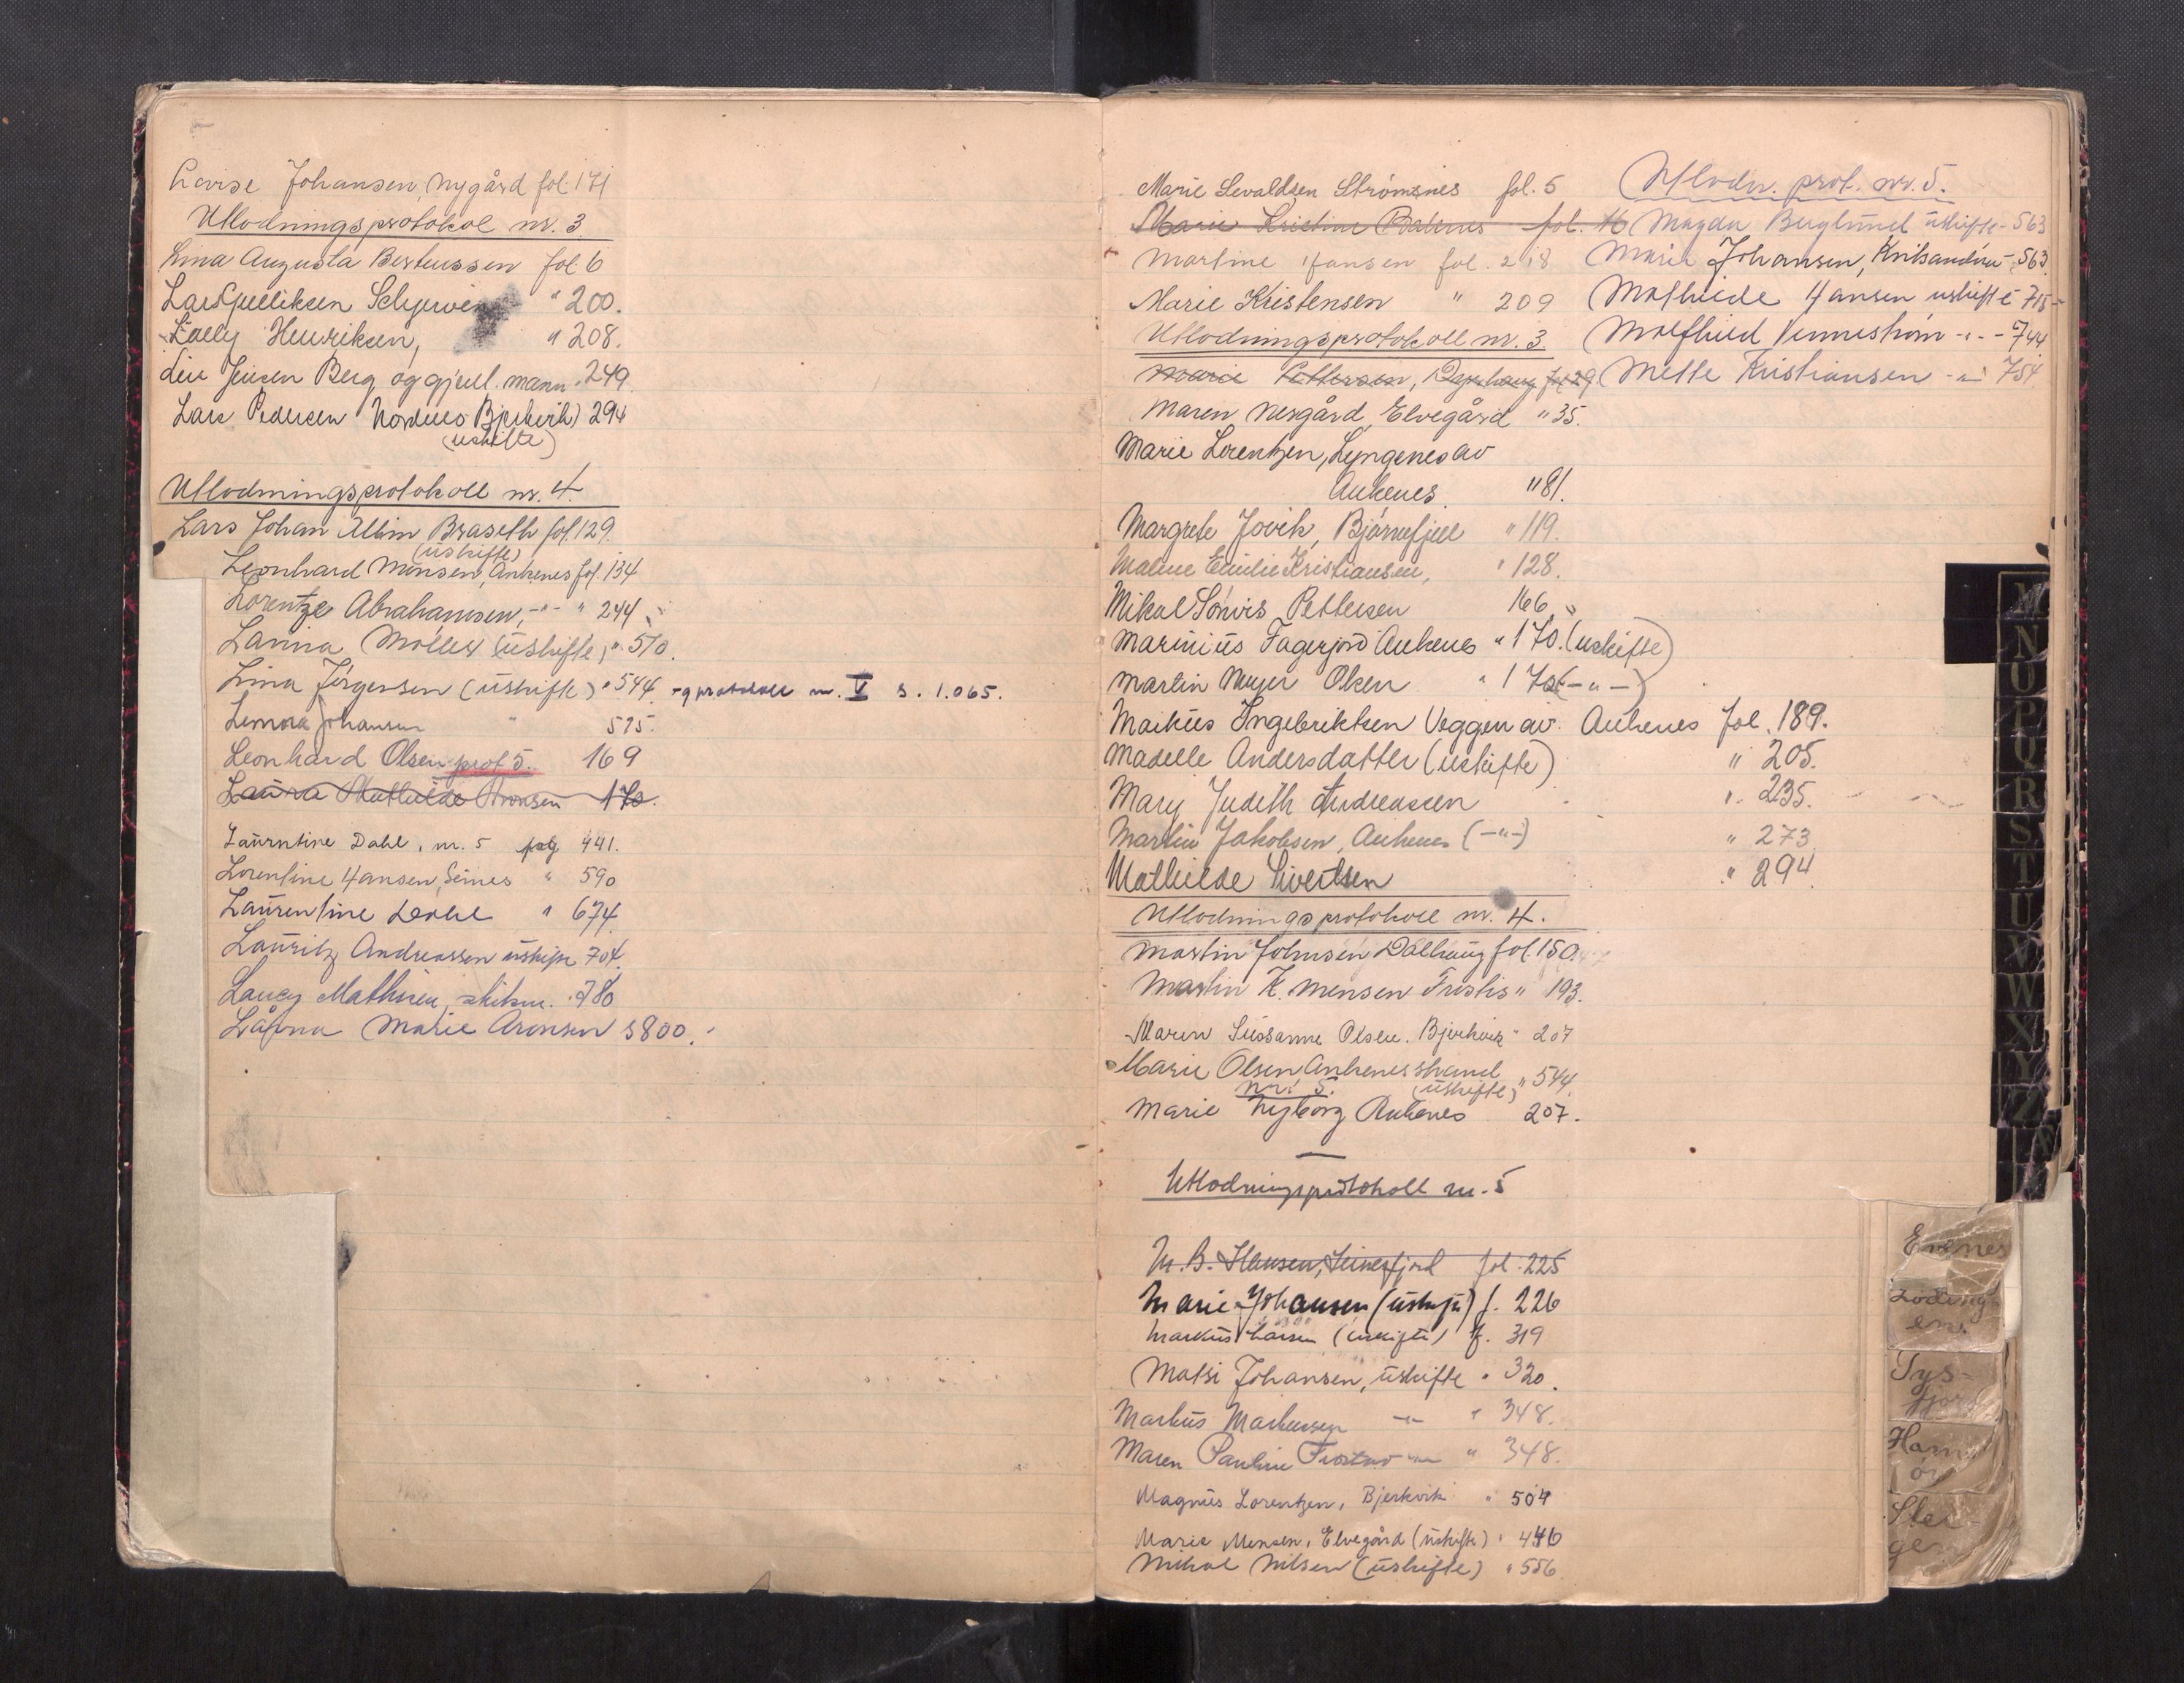 Lovise Johansen, Nygård fol. 171
Utlodningsprotokol nr. 3.
Lina Augusta Berteussen fol. 6
Lars Kjelliksen " 200.
Henriksen, " 208.
Jensen Berg og gjenl. mann " 249
Lars Pedersen Nordnes Bjerkvik) 294
(uskifte)
Utlodningsprotokoll nr. 4.
Lars Johan Albin Braseth fol. 129.
(uskifte)
Leonhard Monsen, Ankenes fol. 134
Lorentze Abrahamsen, -"- " 244
Lanina Møller (uskifte) " 510.
Lina Jørgensen (uskifte) " 544. og protokoll nr. V s. 1.065.
Johansen " 595.
Leonhard Olsen prot 5. 169
Laura Mathilde Aronsen 170.
Laurentine Dahl, nr. 5 pag 441.
Lorentine Hansen, Seines " 590
Laurentine " 674
Lauritz Andreassen uskifte 704.
Laucy Mathisen, 780
Marie Aronsen s 800.
Marie Sevaldsen Strømsnes fol. 5
Marie Kristine fol. 16
Martine Hansen fol. 218
Marie Kristensen " 209
Utlodningsprotokoll nr. 3.
Marie Pettersen, fol 29.
Maren Nesgård, Elvegård " 35.
Marie Lorentzen, Lyngenes av
Ankenes " 81.
Margrete Jovik, Bjørnefjell " 119.
Maline Emilie Kristiansen, " 128.
Mikal Pettersen 166.
Marinius Fagerjord Ankenes " 170. (uskifte)
Martin Meyer Olsen " 170 (-"-)
Markus Ingebriktsen Veggen av. Ankenes fol. 189.
Madelle Andersdatter (uskifte) " 205.
Mary Judith Andreassen " 235.
Martin Jakobsen, Ankenes (-"-) " 273
Mathilde Sivertsen " 294.
Utlodningsprotokoll nr. 4.
Martin Johnsen Dalhaug fol. 150.
Martin K. Monsen " 193.
Maren Susanne Olsen. Bjerkvik " 207
Marie Olsen Ankenesstrand " 544.
nr. 5. (uskifte)
Marie Nyborg Ankenes 207.
Utlodningsprotokoll nr. 5
M. B. Hansen, fol. 225
Marie Johansen (uskifte) f. 226
Markus Larsen (uskifte) f. 319
Matsi Johansen, uskifte " 320.
Markus Markussen -"- " 348.
Maren Pauline -"- " 348.
Magnus Lorentzen, Bjerkvik " 504
Marie Monsen, Elvegård (uskifte) " 446
Mikal Nilsen (uskifte) " 556
Utlodn. prot. nr. 5.
Magda Berglund uskifte - 563
Maria Johansen, - 563
Mathilde Hansen uskifte 715
Vennestrøm -"- 744
Mette Kristiansen -"- 754
M
N
O
P
Q
R
S
T
U
V
W
X
Y
Z
Evenes
Lødingen
Tysfjord
Hamarøy
Steigen